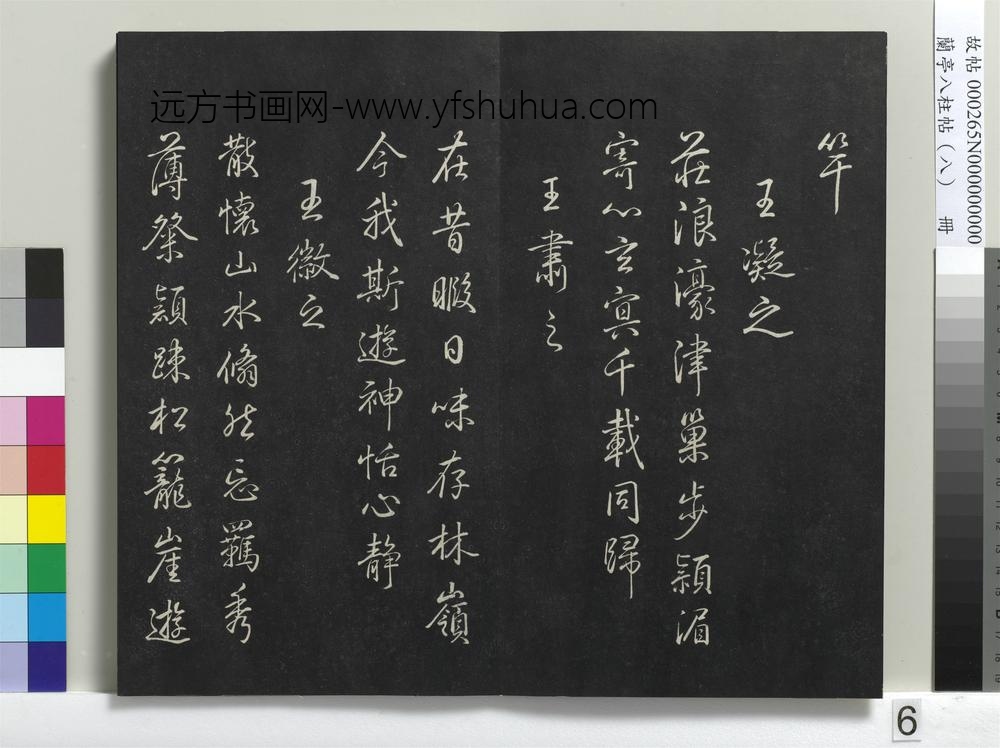 竿
王凝之
莊浪濠津巢步潁湄
寄心玄冥千載同歸
王肅之
在昔暇日味存林嶺
今我斯遊神恬心静
王徽之
散懷山水翛然忘羈秀
薄粲穎踈松籠崖遊
远方书画网-www.yfshuhua.com
故帖 000265N000000000
蘭亭八柱帖（八） 冊
6